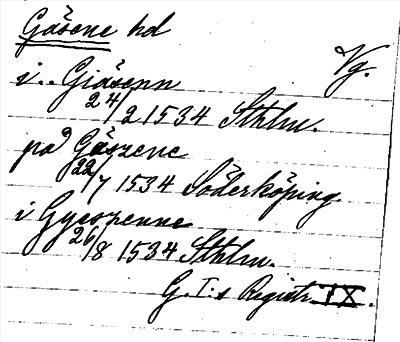 Gäsene hd
Vg.
i.. Giäsenn
24/2 1534 Sthlm.
på Gäszene
22/7 1534 Söderköping
i Gyeszenne
26/8 1534 Sthlm.
G. I:s Registr. IX.